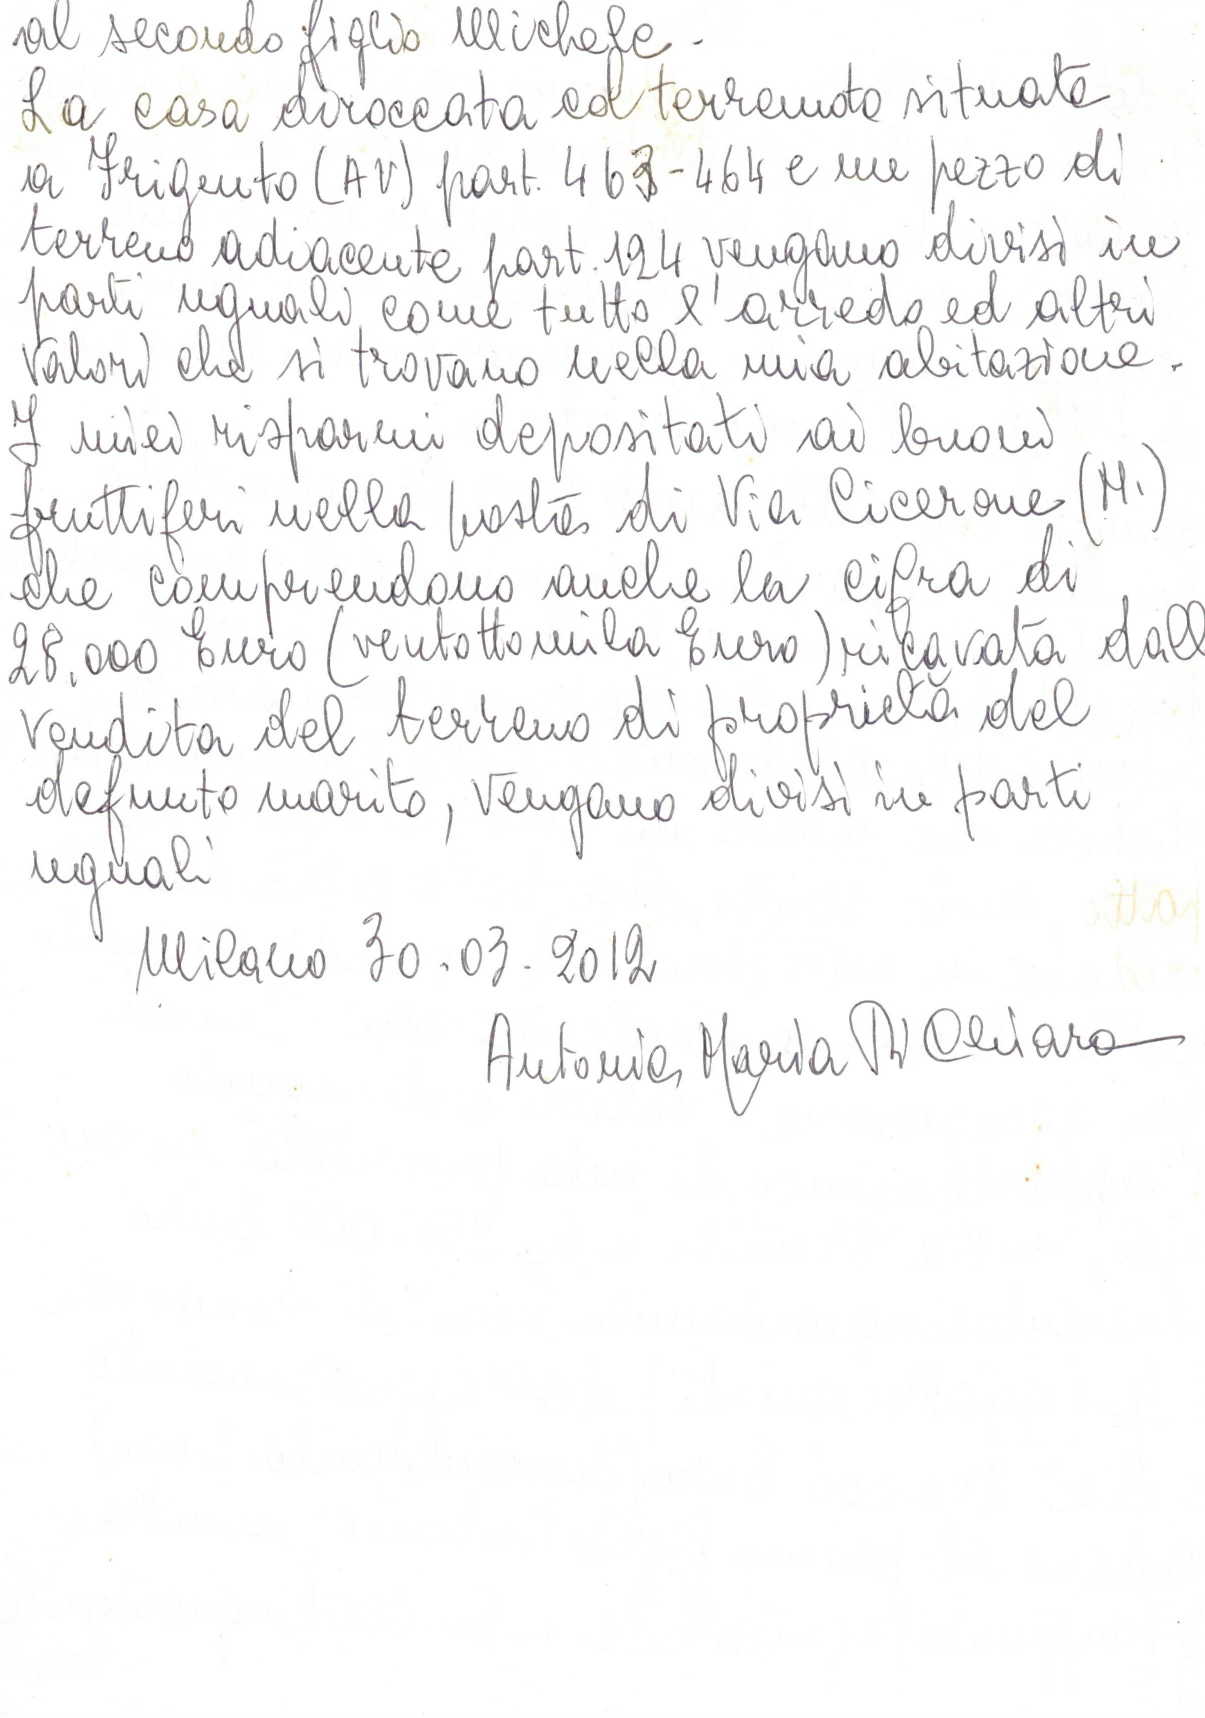 al secondo figlio Michele.
La casa diroccata col terremoto situate
a Frigento (AV) part. 463-464 e un pezzo di
terreno adiacente part. 124 vengano divisi in
parti uguali, come tutto l'arredo ed altri
valori che si trovano nella mia abitazione.
I miei risparmi depositati ai buoni
fruttiferi nella posta di Via Cicerone (Mi)
che comprendono anche la cifra di
28.000 Euro (ventottomila Euro) ricavata dall
vendita del terreno di proprietà del
defunto marito, vengano divisi in parti
uguali
Milano 30.03.2012
Antonia Maria Di Chiara